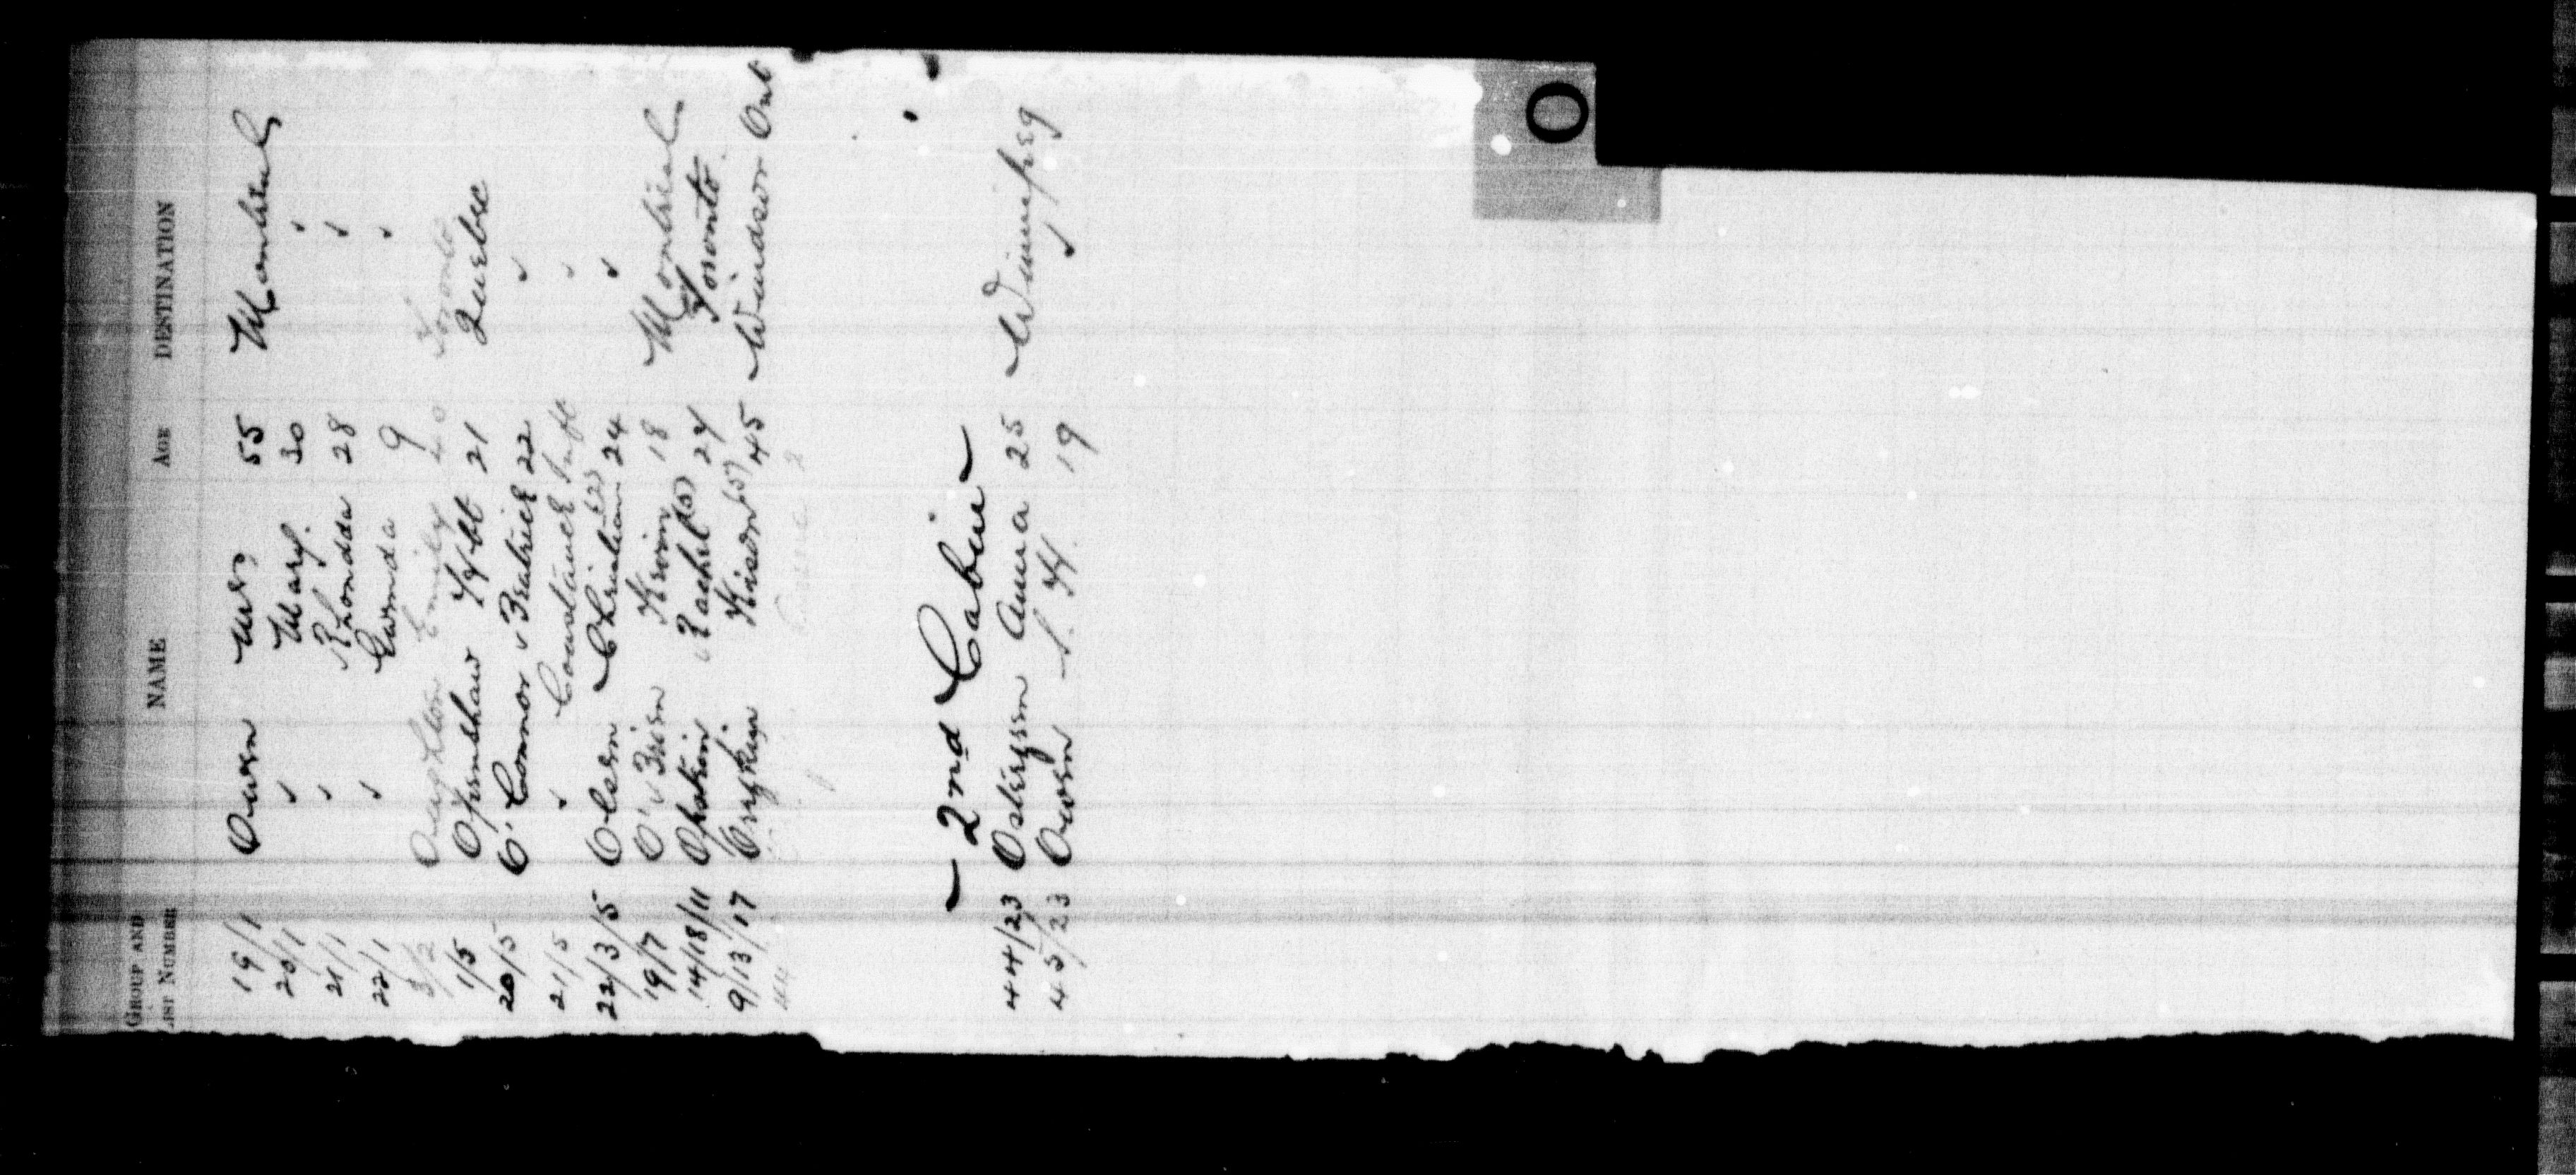 O
GROUP AND LIST NUMBER NAME AGE DESTINATION
19/1 Owen Mrs 55 Montreal
20/1 " Mary 30 "
21/1 " Rhondda 28 "
22/1 " Gwenda 9 "
3/2 Oughton Emily 20 Toronto
1/5 Openshaw 21 Quebec
20/5 O'Connor Beatrice 22 "
21/5 " Constance Inft "
22/3/5 Olsen Christian (2) 24 "
19/7 O'Brien 18 Montreal
14/18/11 Rachel (5) 24 Toronto
9/13/17 (5) 45 Windsor Ont
- 2nd Cabin -
44/23 Ostergren Anna 25 Winnipeg
45/23 Owen S. H. 19 "